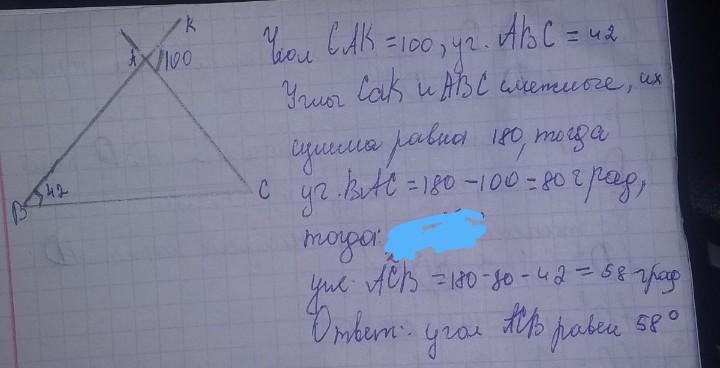 K
A 100
B 42
C
Угол CAK = 100, уг. ABC = 42
Углы CaK и ABC смежные, их
сумма равна 180, тогда
уг. BAC = 180 - 100 = 80 град,
тогда:
угл. ACB = 180 - 80 - 42 = 58 град
Ответ: угол ACB равен 58°